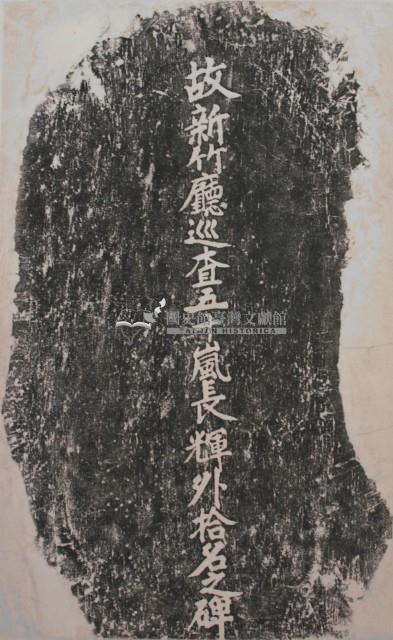 故新竹廳巡査五十嵐長輝外拾名之碑
國史館臺灣文獻館
TAIWAN HISTORICA